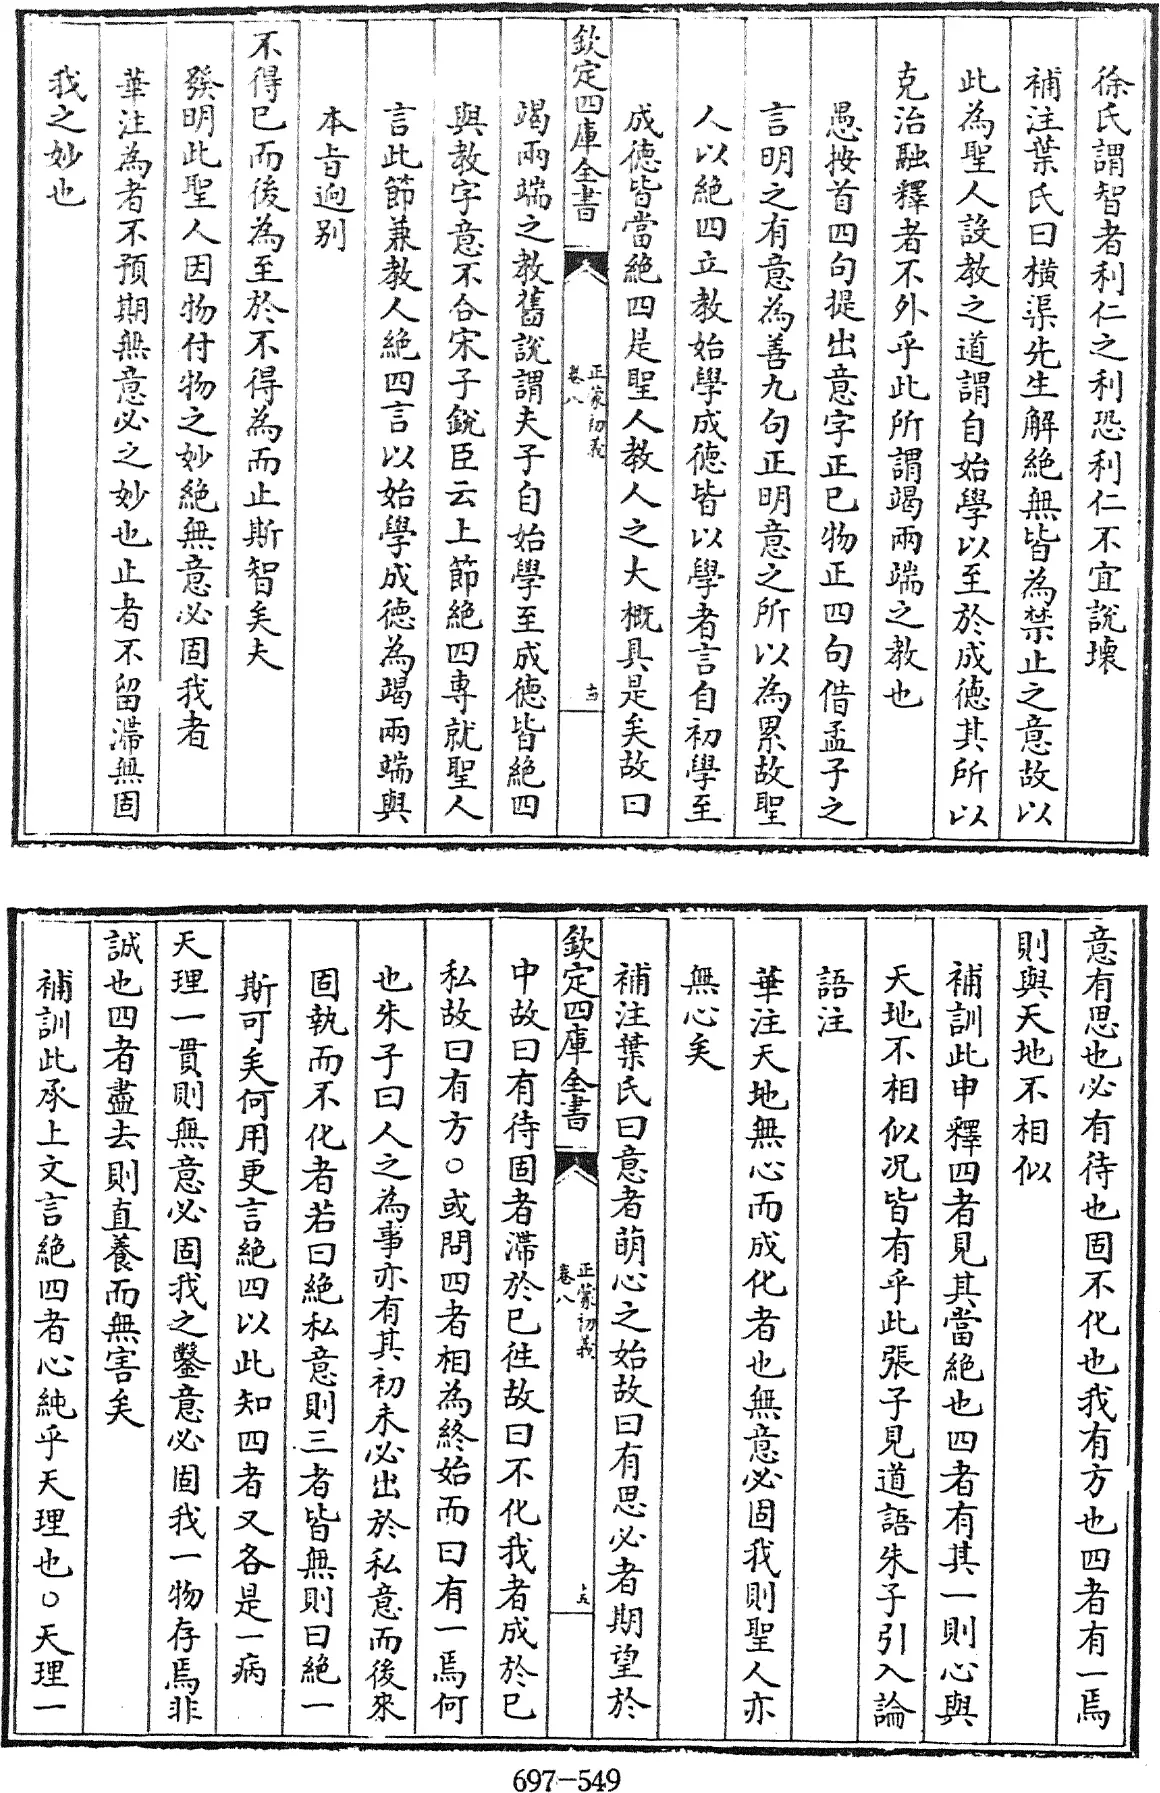 徐氏謂智者利仁之利恐利仁不宜說壞
補注葉氏曰橫渠先生解絶無皆為禁止之意故以
此為聖人設教之道謂自始學以至於成德其所以
克治融釋者不外乎此所謂竭兩端之教也
愚按首四句提出意字正已物正四句借孟子之
言明之有意為善九句正明意之所以為累故聖
人以絶四立教始學成德皆以學者言自初學至
成德皆當絶四是聖人教人之大概具是矣故曰
欽定四庫全書
正蒙初義
卷八
十四
竭兩端之教舊說謂夫子自始學至成德皆絶四
與教字意不合宋子銳臣云上節絶四專就聖人
言此節兼教人絶四言以始學成德為竭兩端與
本旨逈别
不得已而後為至於不得為而止斯智矣夫
發明此聖人因物付物之妙絶無意必固我者
華注為者不預期無意必之妙也止者不留滯無固
我之妙也
意有思也必有待也固不化也我有方也四者有一焉
則與天地不相似
補訓此申釋四者見其當絶也四者有其一則心與
天地不相似况皆有乎此張子見道語朱子引入論
語注
華注天地無心而成化者也無意必固我則聖人亦
無心矣
補注葉氏曰意者萌心之始故曰有思必者期望於
欽定四庫全書
正蒙初義
卷八
十五
中故曰有待固者滯於已徃故曰不化我者成於已
私故曰有方○或問四者相為終始而曰有一焉何
也朱子曰人之為事亦有其初未必出於私意而後來
固執而不化者若曰絶私意則三者皆無則曰絶一
斯可矣何用更言絶四以此知四者又各是一病
天理一貫則無意必固我之鑿意必固我一物存焉非
誠也四者盡去則直養而無害矣
補訓此承上文言絶四者心純乎天理也○天理一
697-549